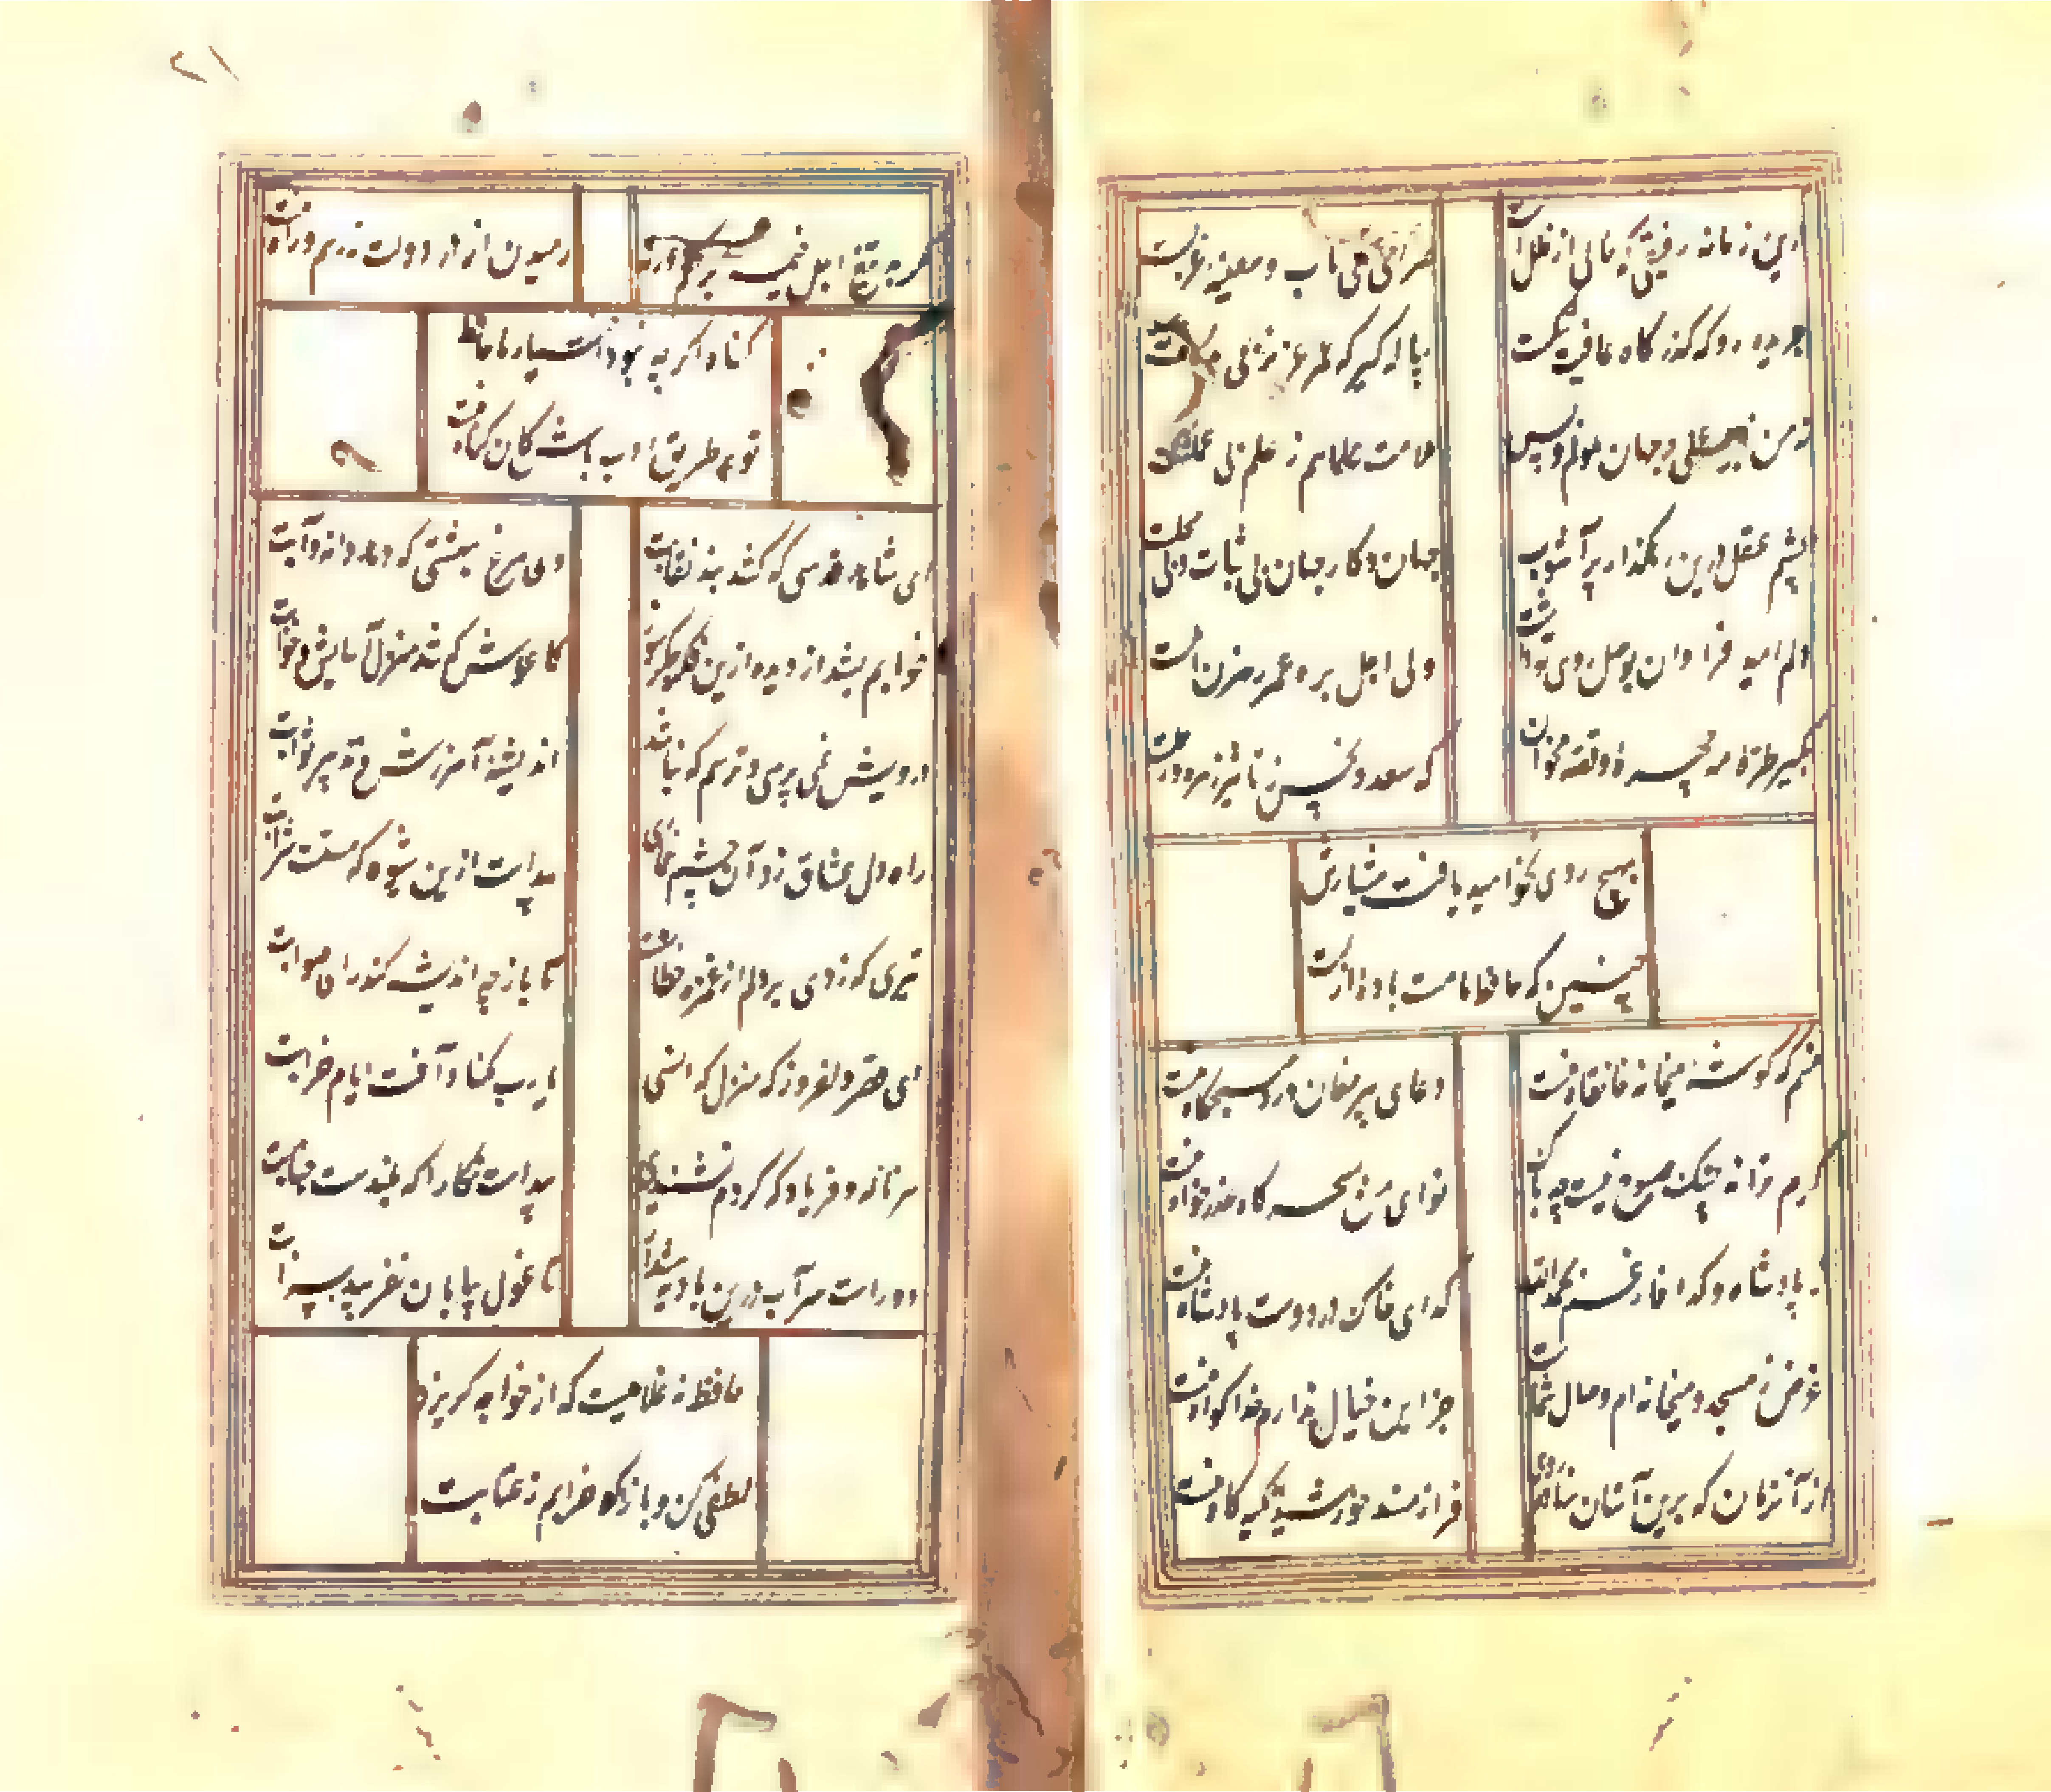 درین زمانه رفیقی که خالی از خلل است
صراحی می ناب و سفینه غزلست
جریده رو که گذرگاه عافیت تنگست
پیاله گیر که عمر عزیز بی بدلست
نه من ز بی عملی در جهان ملولم و بس
ملامت علما هم ز علم بی عملست
بچشم عقل درین رهگذار پر آشوب
جهان و کار جهان بی ثبات و بی محلست
دلم امید فراوان بوصل روی تو داشت
ولی اجل بره عمر رهزن املست
بگیر طره مه چهره و قصه مخوان
که سعد و نحس ز تاثیر زهره و زحلست
بهیچ روی نخواهید یافت هشیارش
چنین که حافظ ما مست باده ازلست
منم که گوشه میخانه خانقاه منست
دعای پیر مغان ورد صبحگاه منست
گرم ترانه چنگ صبوح نیست چه باک
نوای من بسحرگاه عذرخواه منست
ز پادشاه و گدا فارغم بحمدالله
گدای خاک در دوست پادشاه منست
غرض ز مسجد و میخانه ام وصال شماست
جز این خیال ندارم خدا گواه منست
از آن زمان که برین آستان نهادم روی
فراز مسند خورشید تکیه گاه منست
۲۱
مگر بتیغ اجل خیمه بر کنم ورنه
رمیدن از در دولت نه رسم و راه منست
گناه اگر چه نبود اختیار ما حافظ
تو در طریق ادب باش کان گناه منست
ای شاهد قدسی که کشد بند نقابت
وی مرغ بهشتی که دهد دانه و آبت
خوابم بشد از دیده ازین فکر جگرسوز
کاغوش که شد منزل آسایش و خوابت
درویش نمی پرسی و ترسم که نباشد
اندیشه آمرزش و تدبیر ثوابت
راه دل عشاق زد آن چشم خماری
پیداست ازین شیوه که مستست شرابت
تیری که زدی بر دلم از غمزه خطا رفت
تا باز چه اندیشه کند رای صوابت
ای قصر دلفروز که منزلگه انسی
یارب مکناد آفت ایام خرابت
هر ناله و فریاد که کردم نشنیدی
پیداست نگارا که بلندست جنابت
دورست سر آب درین بادیه هشدار
تا غول بیابان نفریبد بسرابت
حافظ نه غلامیست که از خواجه گریزد
لطفی کن و بازآ که خرابم ز عتابت